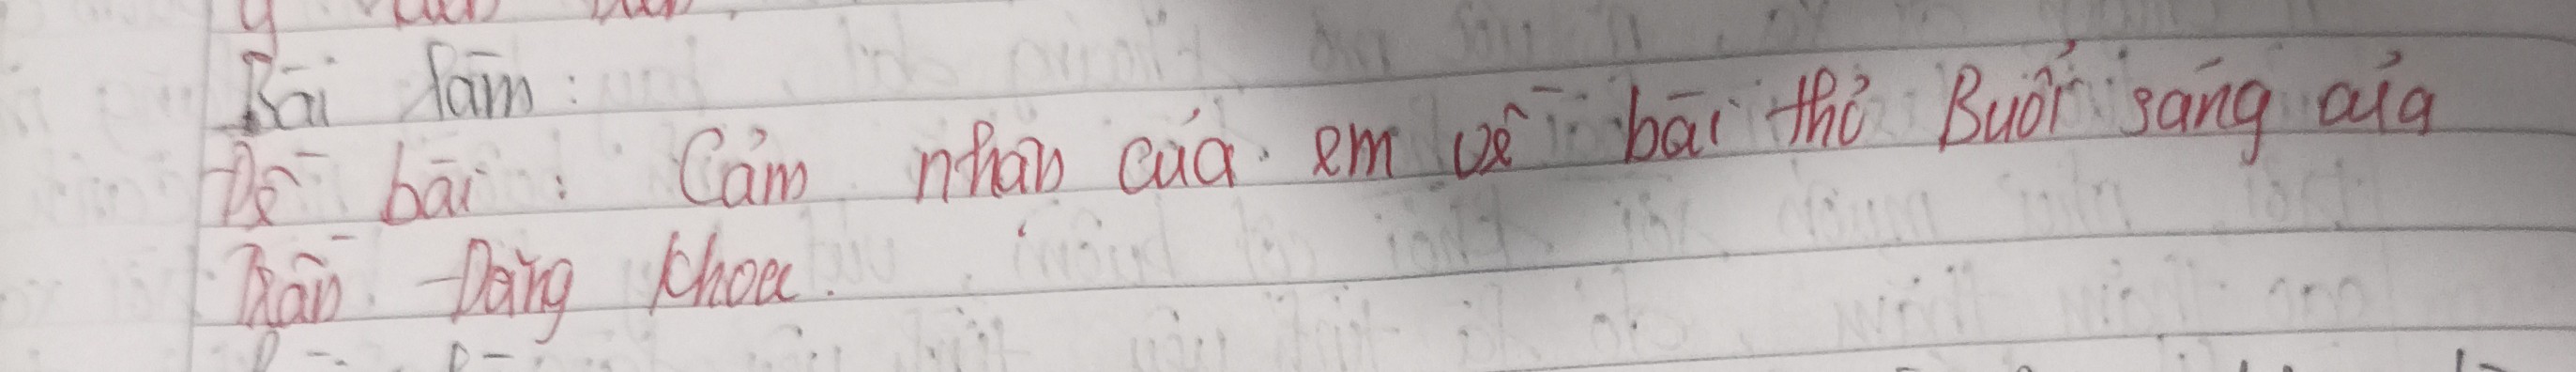 Bài làm:
Đề bài: Cảm nhận của em về bài thơ Buổi sáng của
Trần Đăng Khoa.